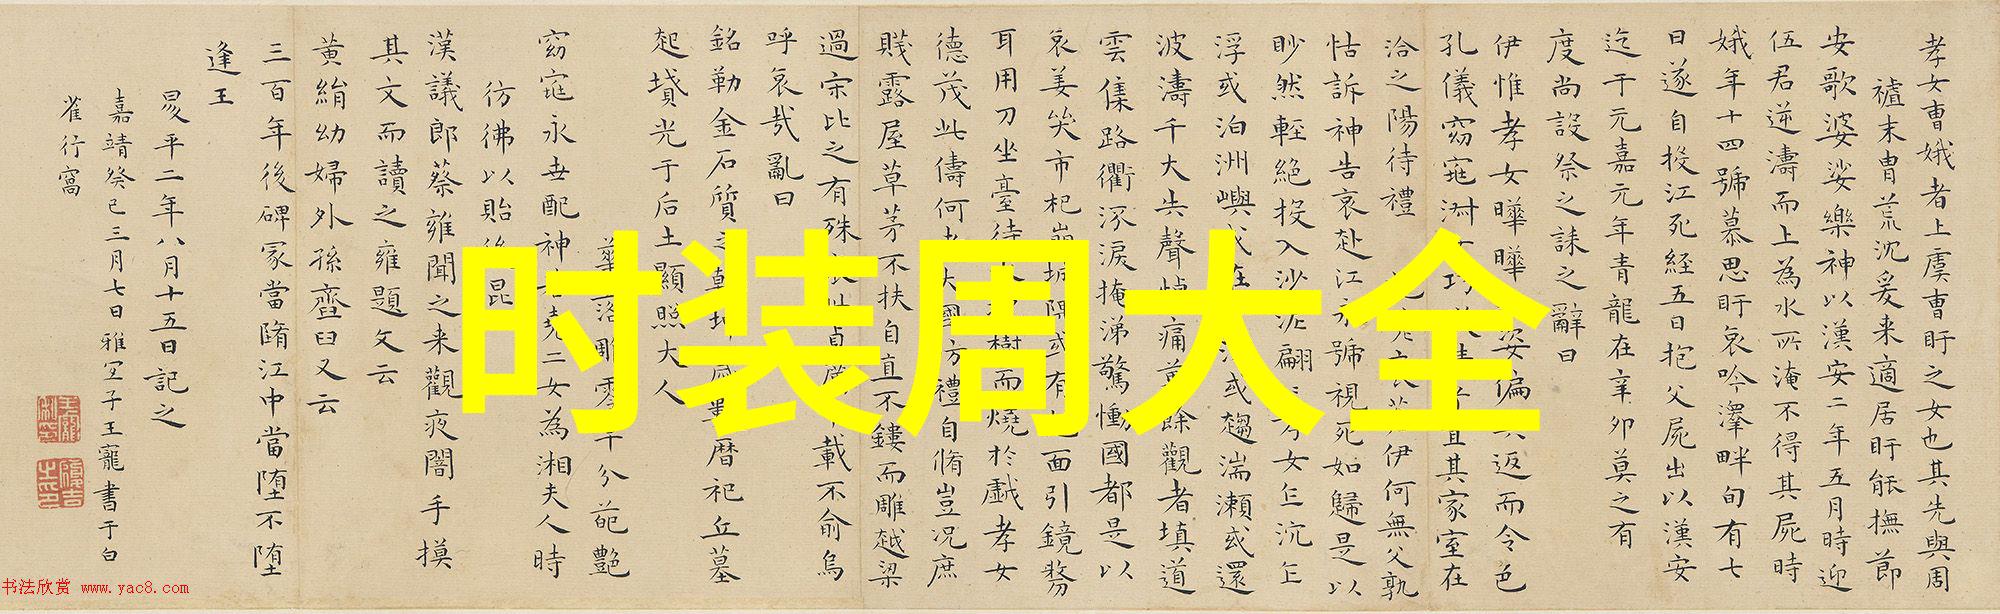 孝女曹娥者上虞曹盱之女也其先與周
末胄荒沈爰来適居盱能撫節
安歌婆娑樂神以漢安二年五月時迎
伍君逆濤而上為水所淹不得其屍時
娥年十四號慕思盱哀吟澤畔旬有七
日遂自投江死経五日抱父屍出以漢安
迄于元嘉元年青龍在辛卯莫之有
度尚設祭之誄之辭曰
伊惟孝女曄曄姿偏其返而令色
孔儀窈窕淑宜其家室在
洽之陽待禮伊何無父孰
怙訴神告哀赴江永號視死如歸是以
眇然輕絶投入沙泥翩孝女乍沉乍
浮或泊洲嶼或在流或趨湍瀬或還
波濤千夫失聲悼痛萬餘觀者填道
雲集路衢泳淚掩涕驚慟國都是以
哀姜哭市杞崩城隅或有面引鏡剺
耳用刀坐臺待樹而燒於戲孝女
德茂此儔何者大國方禮自脩豈況庶
賤露屋草茅不扶自直不鏤而雕越梁
過宋比之有殊哀此貞厲千載不渝烏
呼哀哉亂曰
銘勒金石質之乾坤歲數暦祀丘墓
起墳光于后土顯照夫人
華落雕零早分葩艷
窈窕永世配神若堯二女為湘夫人時
彷彿以貽後昆
漢議郎蔡雍聞之来觀夜闇手摸
其文而讀之雍題文云
黄絹幼婦外孫齏臼又云
三百年後碑冢當隋江中當堕不堕
逢王
昜平二年八月十五日記之
嘉靖癸巳三月七日雅宜子王寵書于白
雀行窩
时装周大全
书法欣赏 www.yac8.com